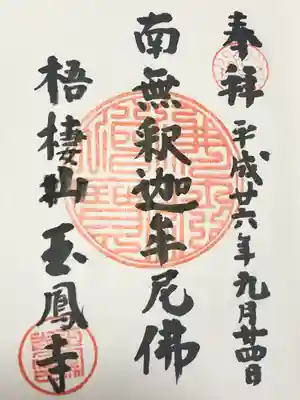 奉拝 平成廿六年九月廿四日
南無釈迦牟尼佛
梧棲山玉鳳寺